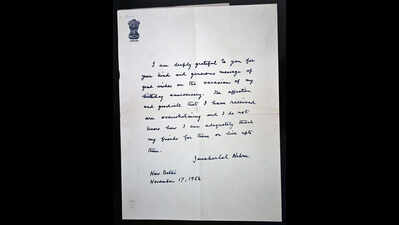 I am deeply grateful to you for
your kind and generous message of
good wishes on the occasion of my
birthday anniversary. The affection
and goodwill that I have received
are overwhelming and I do not
know how I can adequately thank
my friends for them or live upto
them.
Jawaharlal Nehru
New Delhi
November 17, 1956